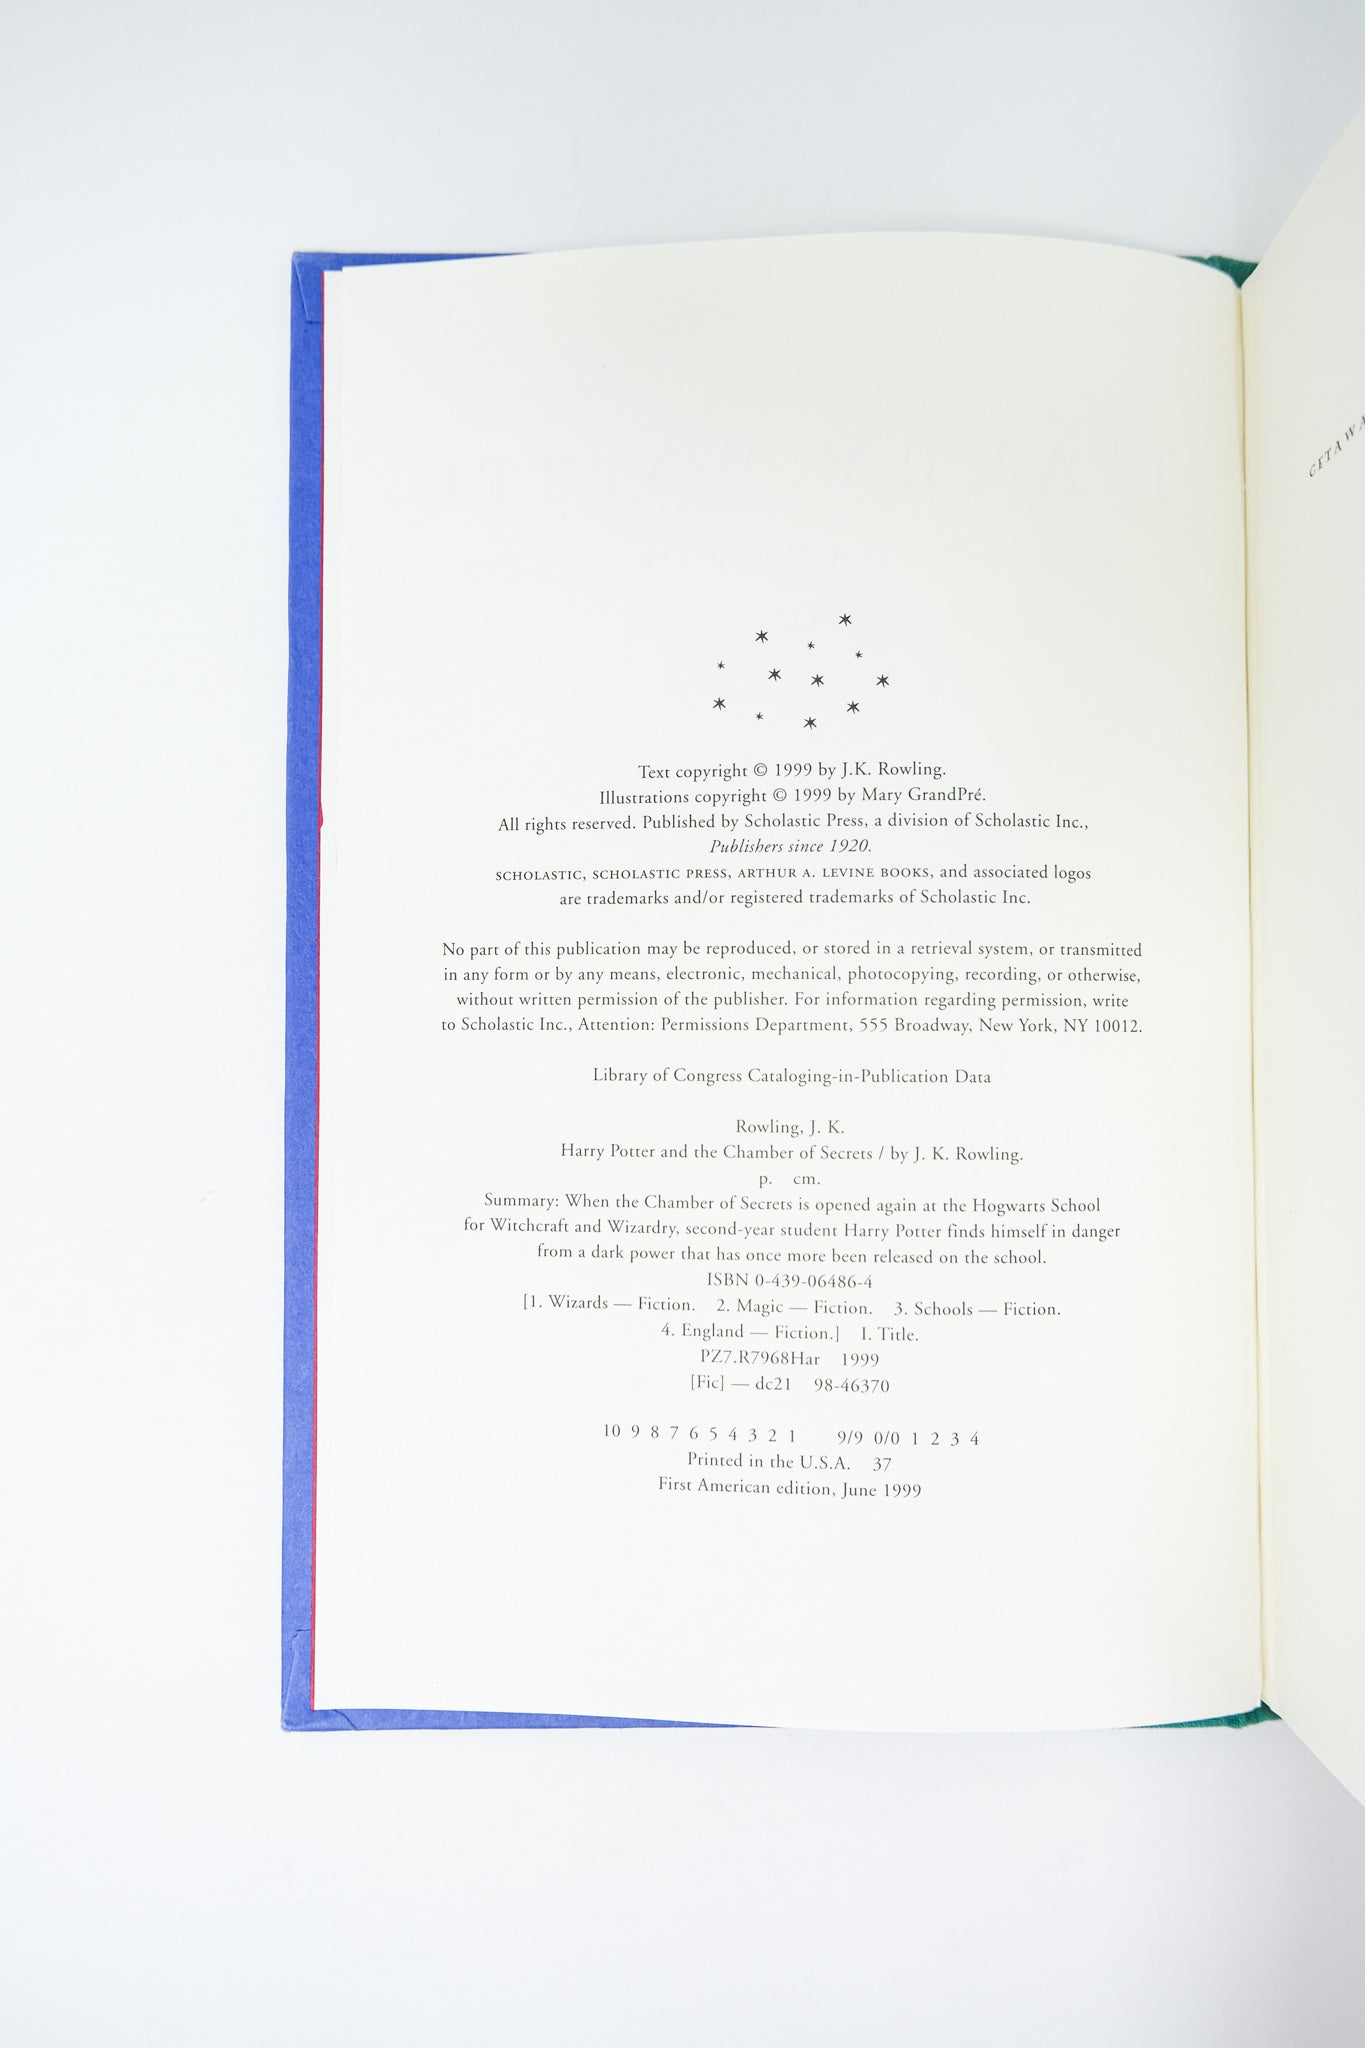 Text copyright © 1999 by J.K. Rowling.
Illustrations copyright © 1999 by Mary GrandPré.
All rights reserved. Published by Scholastic Press, a division of Scholastic Inc.,
Publishers since 1920.
SCHOLASTIC, SCHOLASTIC PRESS, ARTHUR A. LEVINE BOOKS, and associated logos
are trademarks and/or registered trademarks of Scholastic Inc.
No part of this publication may be reproduced, or stored in a retrieval system, or transmitted
in any form or by any means, electronic, mechanical, photocopying, recording, or otherwise,
without written permission of the publisher. For information regarding permission, write
to Scholastic Inc., Attention: Permissions Department, 555 Broadway, New York, NY 10012.
Library of Congress Cataloging-in-Publication Data
Rowling, J. K.
Harry Potter and the Chamber of Secrets / by J. K. Rowling.
p. cm.
Summary: When the Chamber of Secrets is opened again at the Hogwarts School
for Witchcraft and Wizardry, second-year student Harry Potter finds himself in danger
from a dark power that has once more been released on the school.
ISBN 0-439-06486-4
[1. Wizards — Fiction. 2. Magic — Fiction. 3. Schools — Fiction.
4. England — Fiction.] I. Title.
PZ7.R7968Har 1999
[Fic] — dc21 98-46370
10 9 8 7 6 5 4 3 2 1 9/9 0/0 1 2 3 4
Printed in the U.S.A. 37
First American edition, June 1999